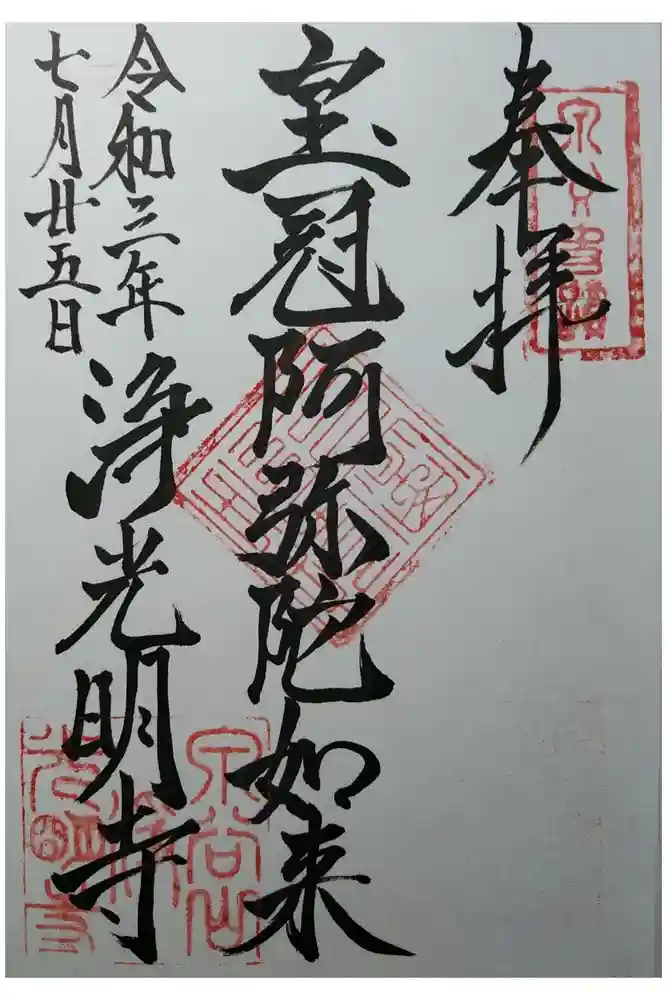 奉拝
皇冠阿弥陀如来
令和三年
七月廿五日
浄光明寺